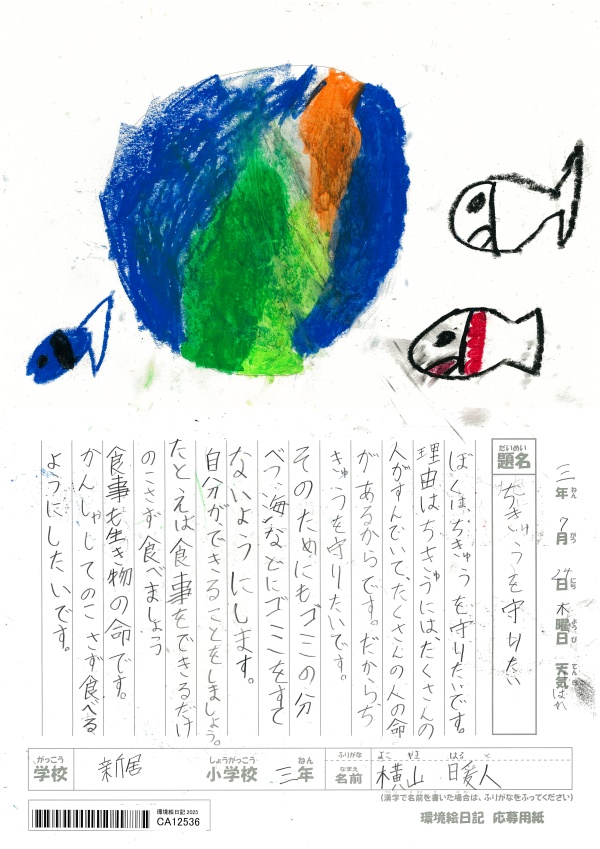 三年 7月 24日 木曜日 天気 はれ
ねん がつ にち ようび てんき
だいめい
題名
ちきゅうを守りたい
ぼくは、ちきゅうを守りたいです。
理由はちきゅうには、たくさんの
人がすんでいて、たくさんの人の命
があるからです。だからち
きゅうを守りたいです。
そのためにもゴミの分
べつ、海などにゴミをすて
ないようにします。
自分ができることをしましょう。
たとえば食事をできるだけ
のこさず食べましょう
食事も生き物の命です。
かんしゃしてのこさず食べる
ようにしたいです。
がっこう しょうがっこう ねん ふりがな よこ やま はる と
学校 新居 小学校 三年 なまえ 名前 横山 暖人
(漢字で名前を書いた場合は、ふりがなをふってください)
環境絵日記 2025
CA12536
環境絵日記 応募用紙